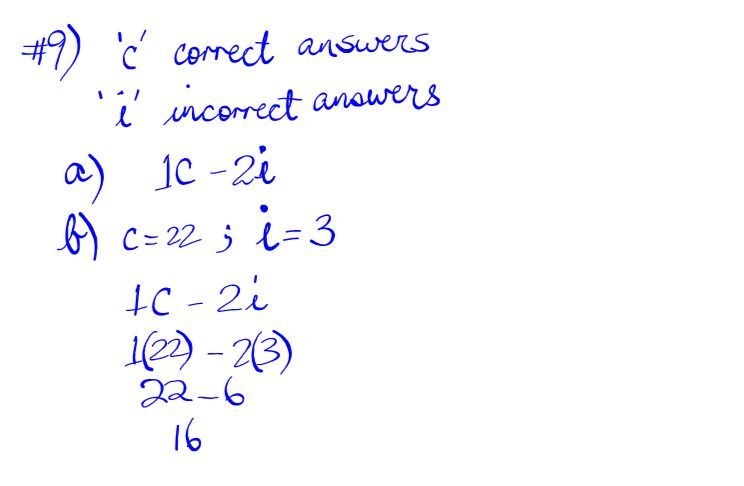 #9) 'c' correct answers
'i' incorrect answers
a) 1C - 2i
b) c = 22 ; i = 3
1C - 2i
1(22) - 2(3)
22 - 6
16